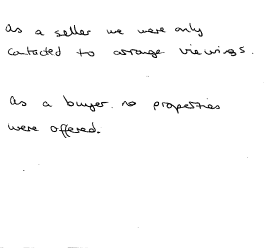 As a seller we were only
contacted to arrange viewings.
As a buyer no properties
were offered.